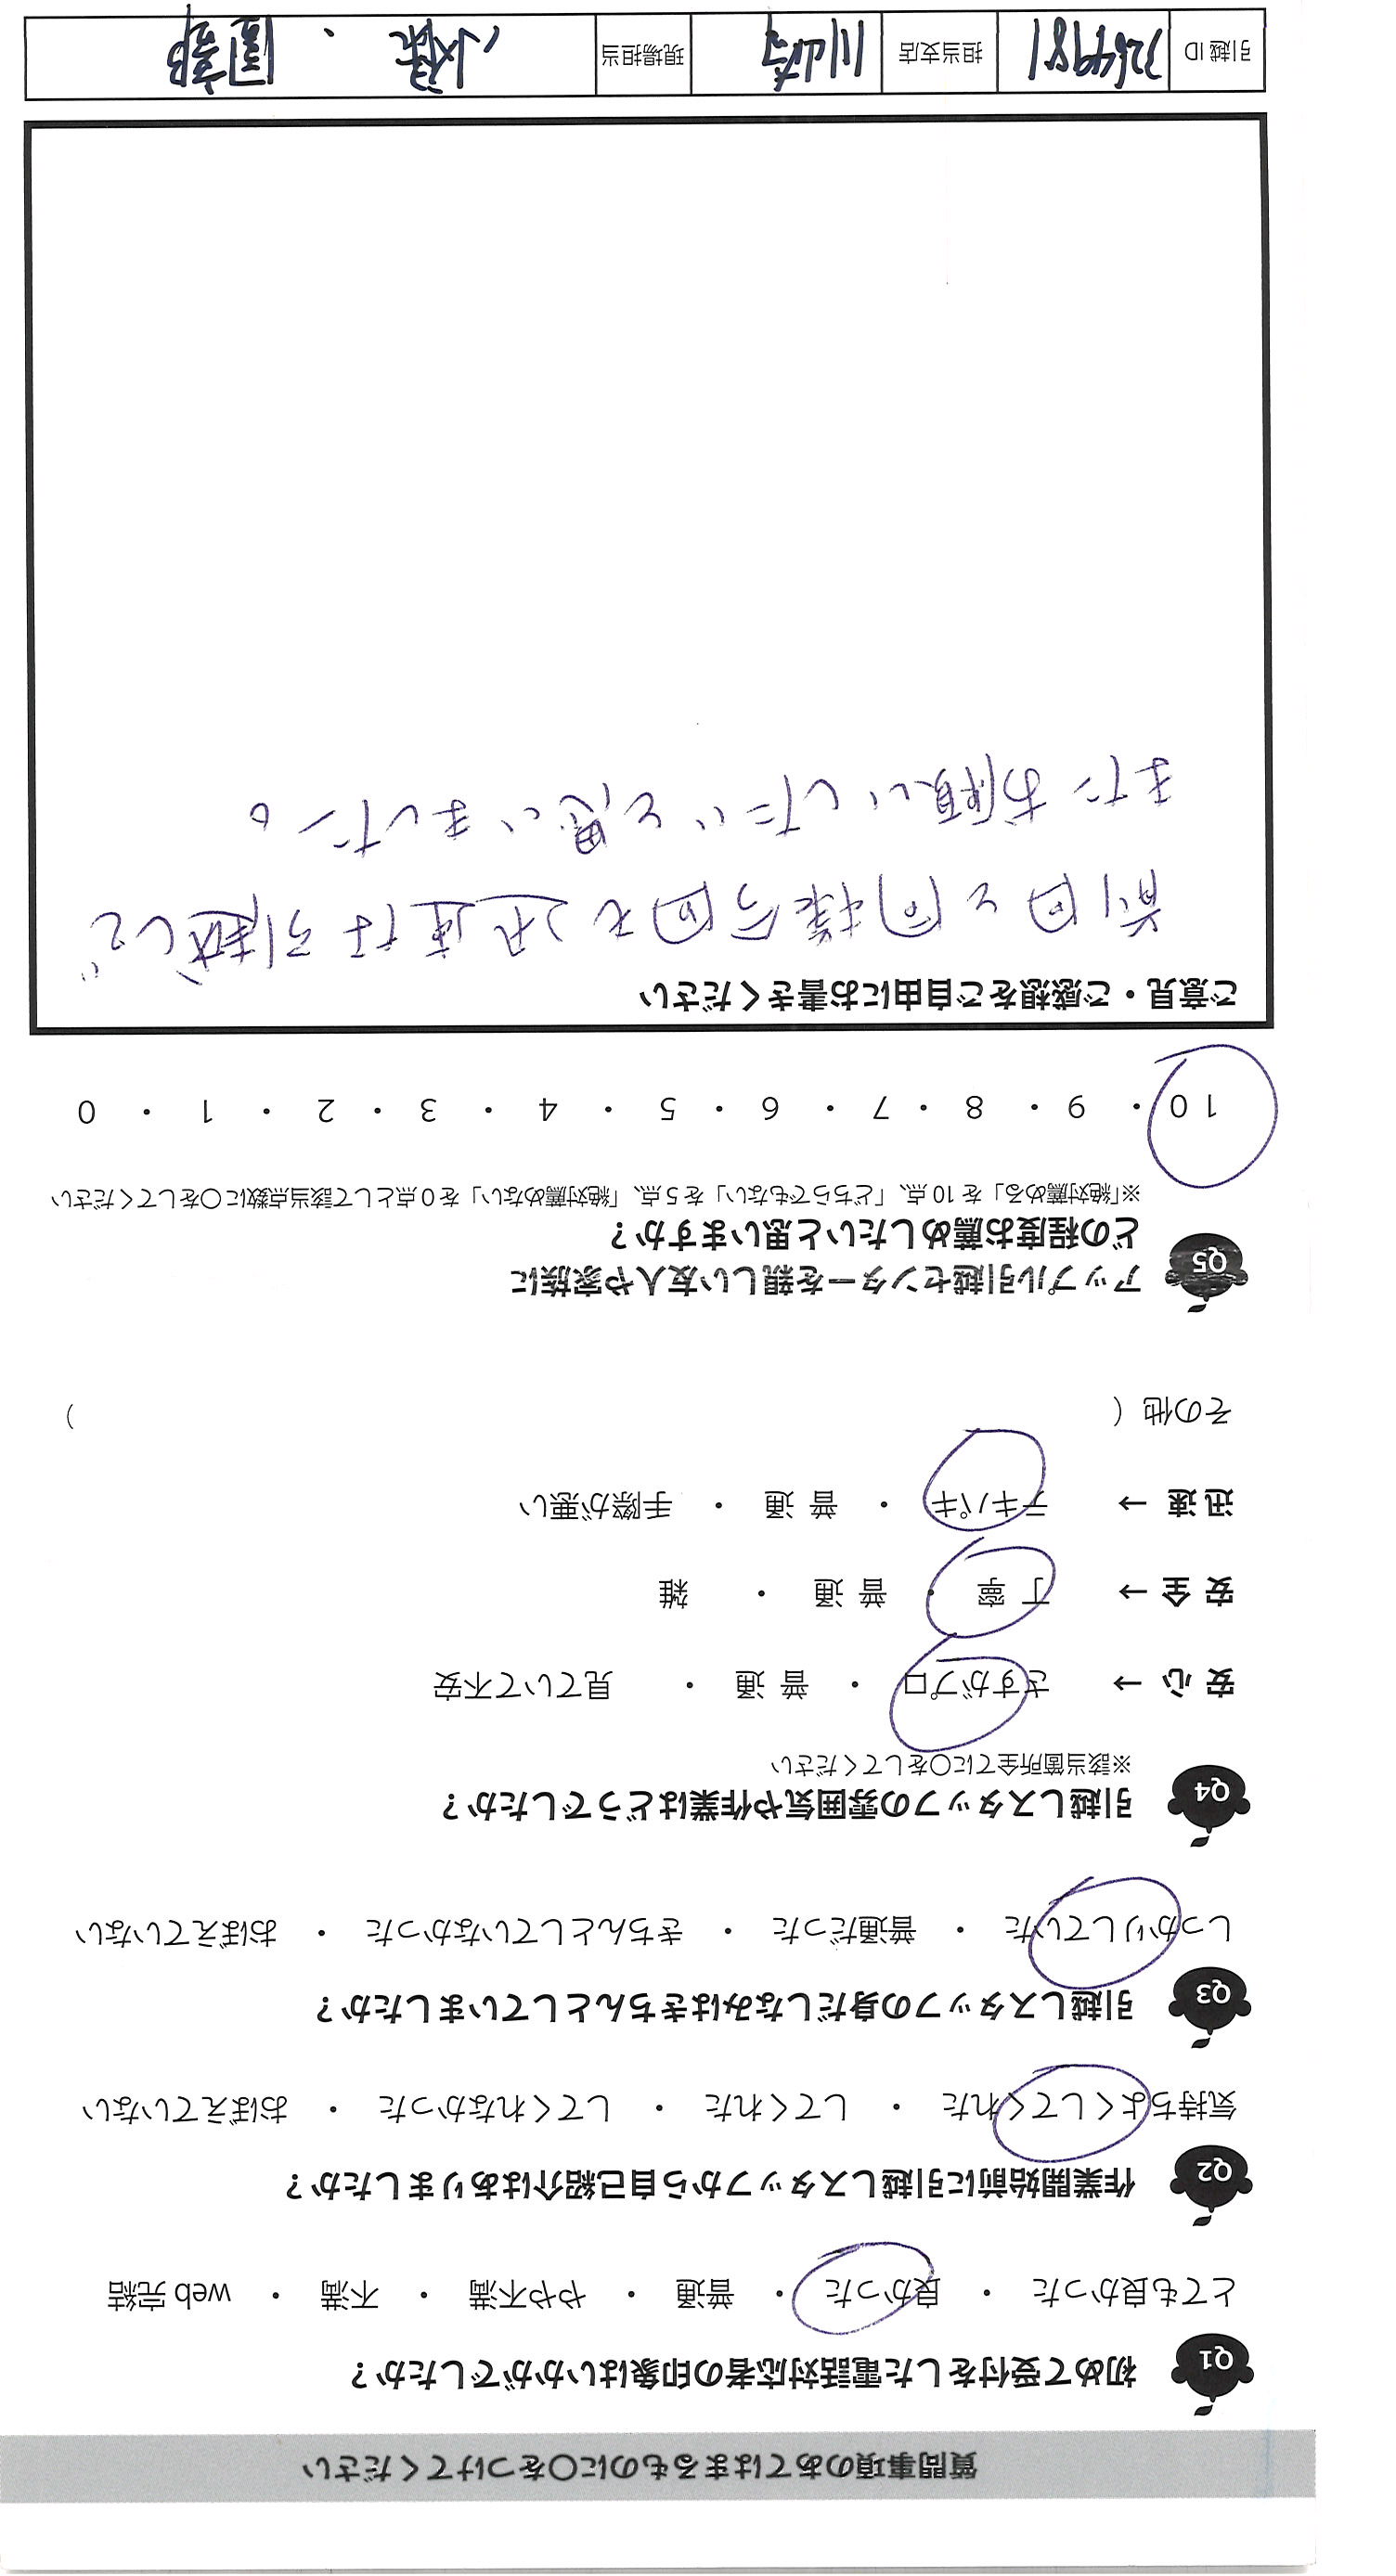 質問事項のあてはまるものに〇をつけてください
Q1 初めて受付をした電話対応者の印象はいかがでしたか？
とても良かった ・ 良かった ・ 普通 ・ やや不満 ・ 不満 ・ web 完結
Q2 作業開始前に引越しスタッフから自己紹介はありましたか？
気持ちよくしてくれた ・ してくれた ・ してくれなかった ・ おぼえていない
Q3 引越しスタッフの身だしなみはきちんとしていましたか？
しっかりしていた ・ 普通だった ・ きちんとしていなかった ・ おぼえていない
Q4 引越しスタッフの雰囲気や作業はどうでしたか？
※該当箇所全てに〇をしてください
安 心 → さすがプロ ・ 普 通 ・ 見ていて不安
安 全 → 丁 寧 ・ 普 通 ・ 雑
迅 速 → テキパキ ・ 普 通 ・ 手際が悪い
その他 ( )
Q5 アップル引越センターを親しい友人や家族に
どの程度お薦めしたいと思いますか？
※「絶対薦める」を 10 点、「どちらでもない」を 5 点、「絶対薦めない」を 0 点として該当点数に〇をしてください
10 ・ 9 ・ 8 ・ 7 ・ 6 ・ 5 ・ 4 ・ 3 ・ 2 ・ 1 ・ 0
ご意見・ご感想をご自由にお書きください
前回と同様今回も迅速な引越しで
またお願いしたいと思いました。
引越 ID 3264981 担当支店 川崎 現場担当 小塚 ・ 園部